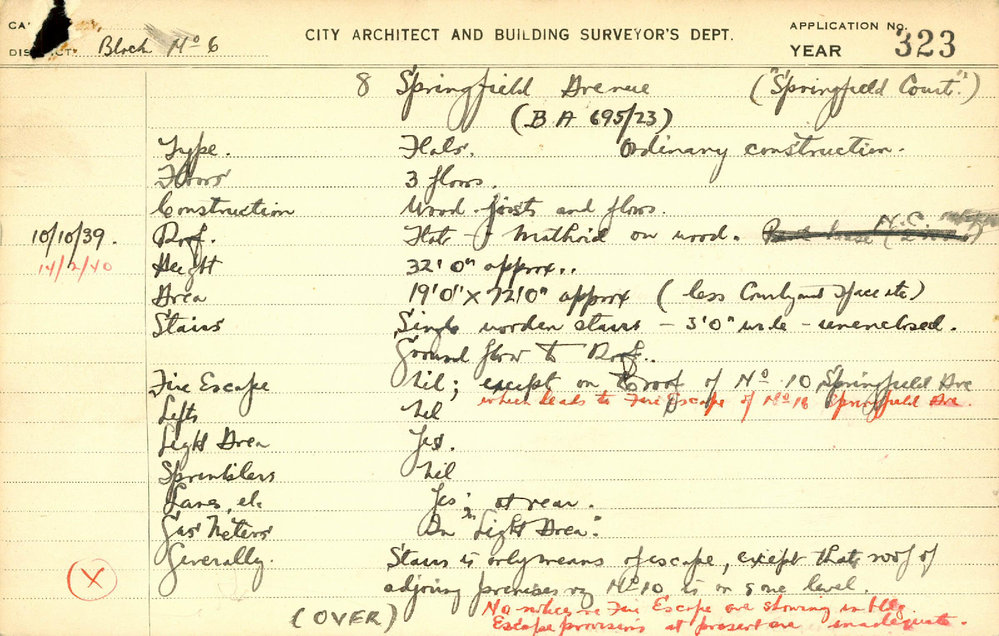 CITY ARCHITECT AND BUILDING SURVEYOR'S DEPT.
APPLICATION No. 323
YEAR
Block No 6
8 Springfield Avenue ("Springfield Court.")
(B A 695/23)
Type. Flats. Ordinary construction.
Floors 3 floors.
Construction Wood joists and floors.
10/10/39. Roof. Flat - Malthoid on wood.
14/2/40 Height 32'0" approx..
Area 19'0" x 72'0" approx (less Courtyard space etc)
Stairs Single wooden stairs - 3'0" wide - unenclosed.
Ground floor to Roof.
Fire Escape Nil; except on to roof of No 10 Springfield Ave
which leads to Fire Escape of No 16 Springfield Ave.
Lifts Nil
Light Area Yes.
Sprinklers Nil
Lanes, etc Yes; at rear.
Gas Meters In "Light Area".
Generally. Stairs is only means of escape, except that roof of
adjoining premises No 10 is on same level.
(X)
(OVER)
No notices re Fire Escape are showing in bldg.
Escape provisions at present are inadequate.